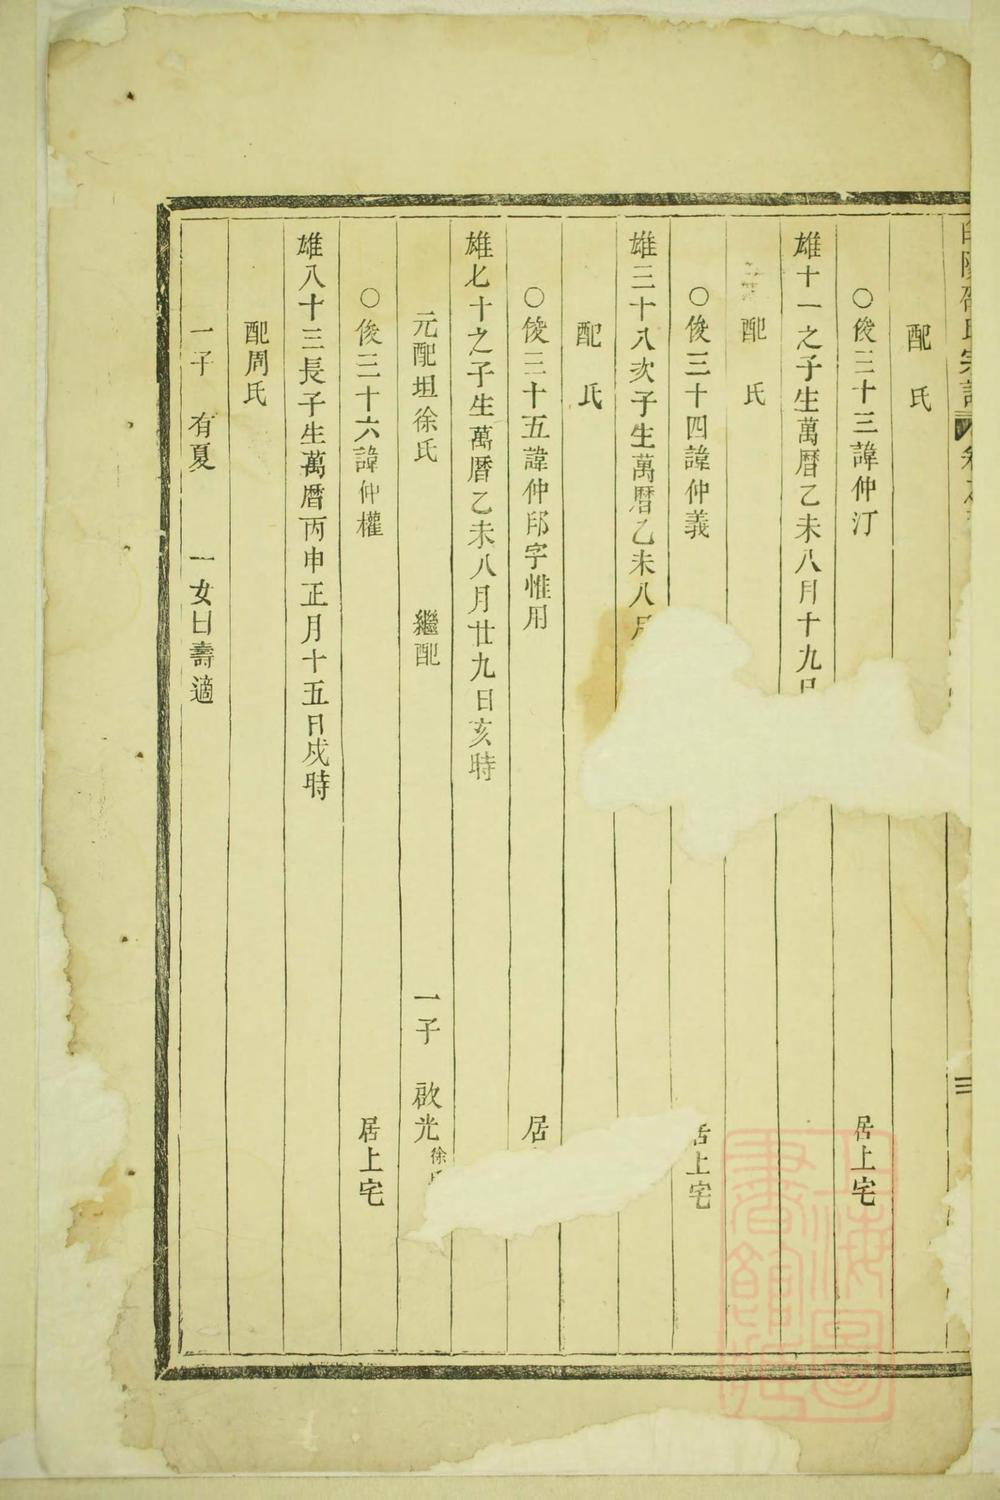 邵氏宗譜
三
配　氏
○俊三十三諱仲汀　居上宅
雄十一之子生萬曆乙未八月十九日
配　氏
○俊三十四諱仲義　居上宅
雄三十八次子生萬曆乙未八月
配　氏
○俊三十五諱仲邱字惟用　居
雄七十之子生萬曆乙未八月廿九日亥時
元配坦徐氏　繼配　一子　啟光徐
○俊三十六諱仲權　居上宅
雄八十三長子生萬曆丙申正月十五日戍時
配周氏
一子　有夏　一女曰壽適
上海圖書館藏